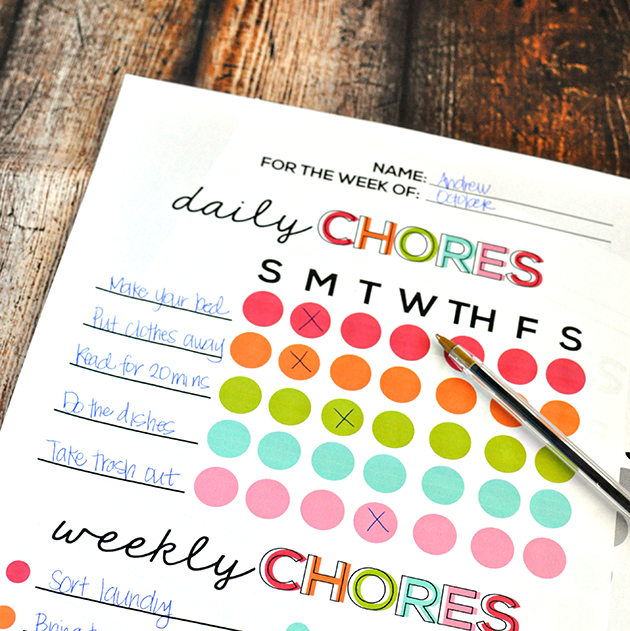 NAME: Andrew
FOR THE WEEK OF: October
daily CHORES
S M T W TH F S
Make your bed
X
Put clothes away
X
Read for 20 mins
X
Do the dishes
Take trash out
X
weekly CHORES
Sort laundry
Bring